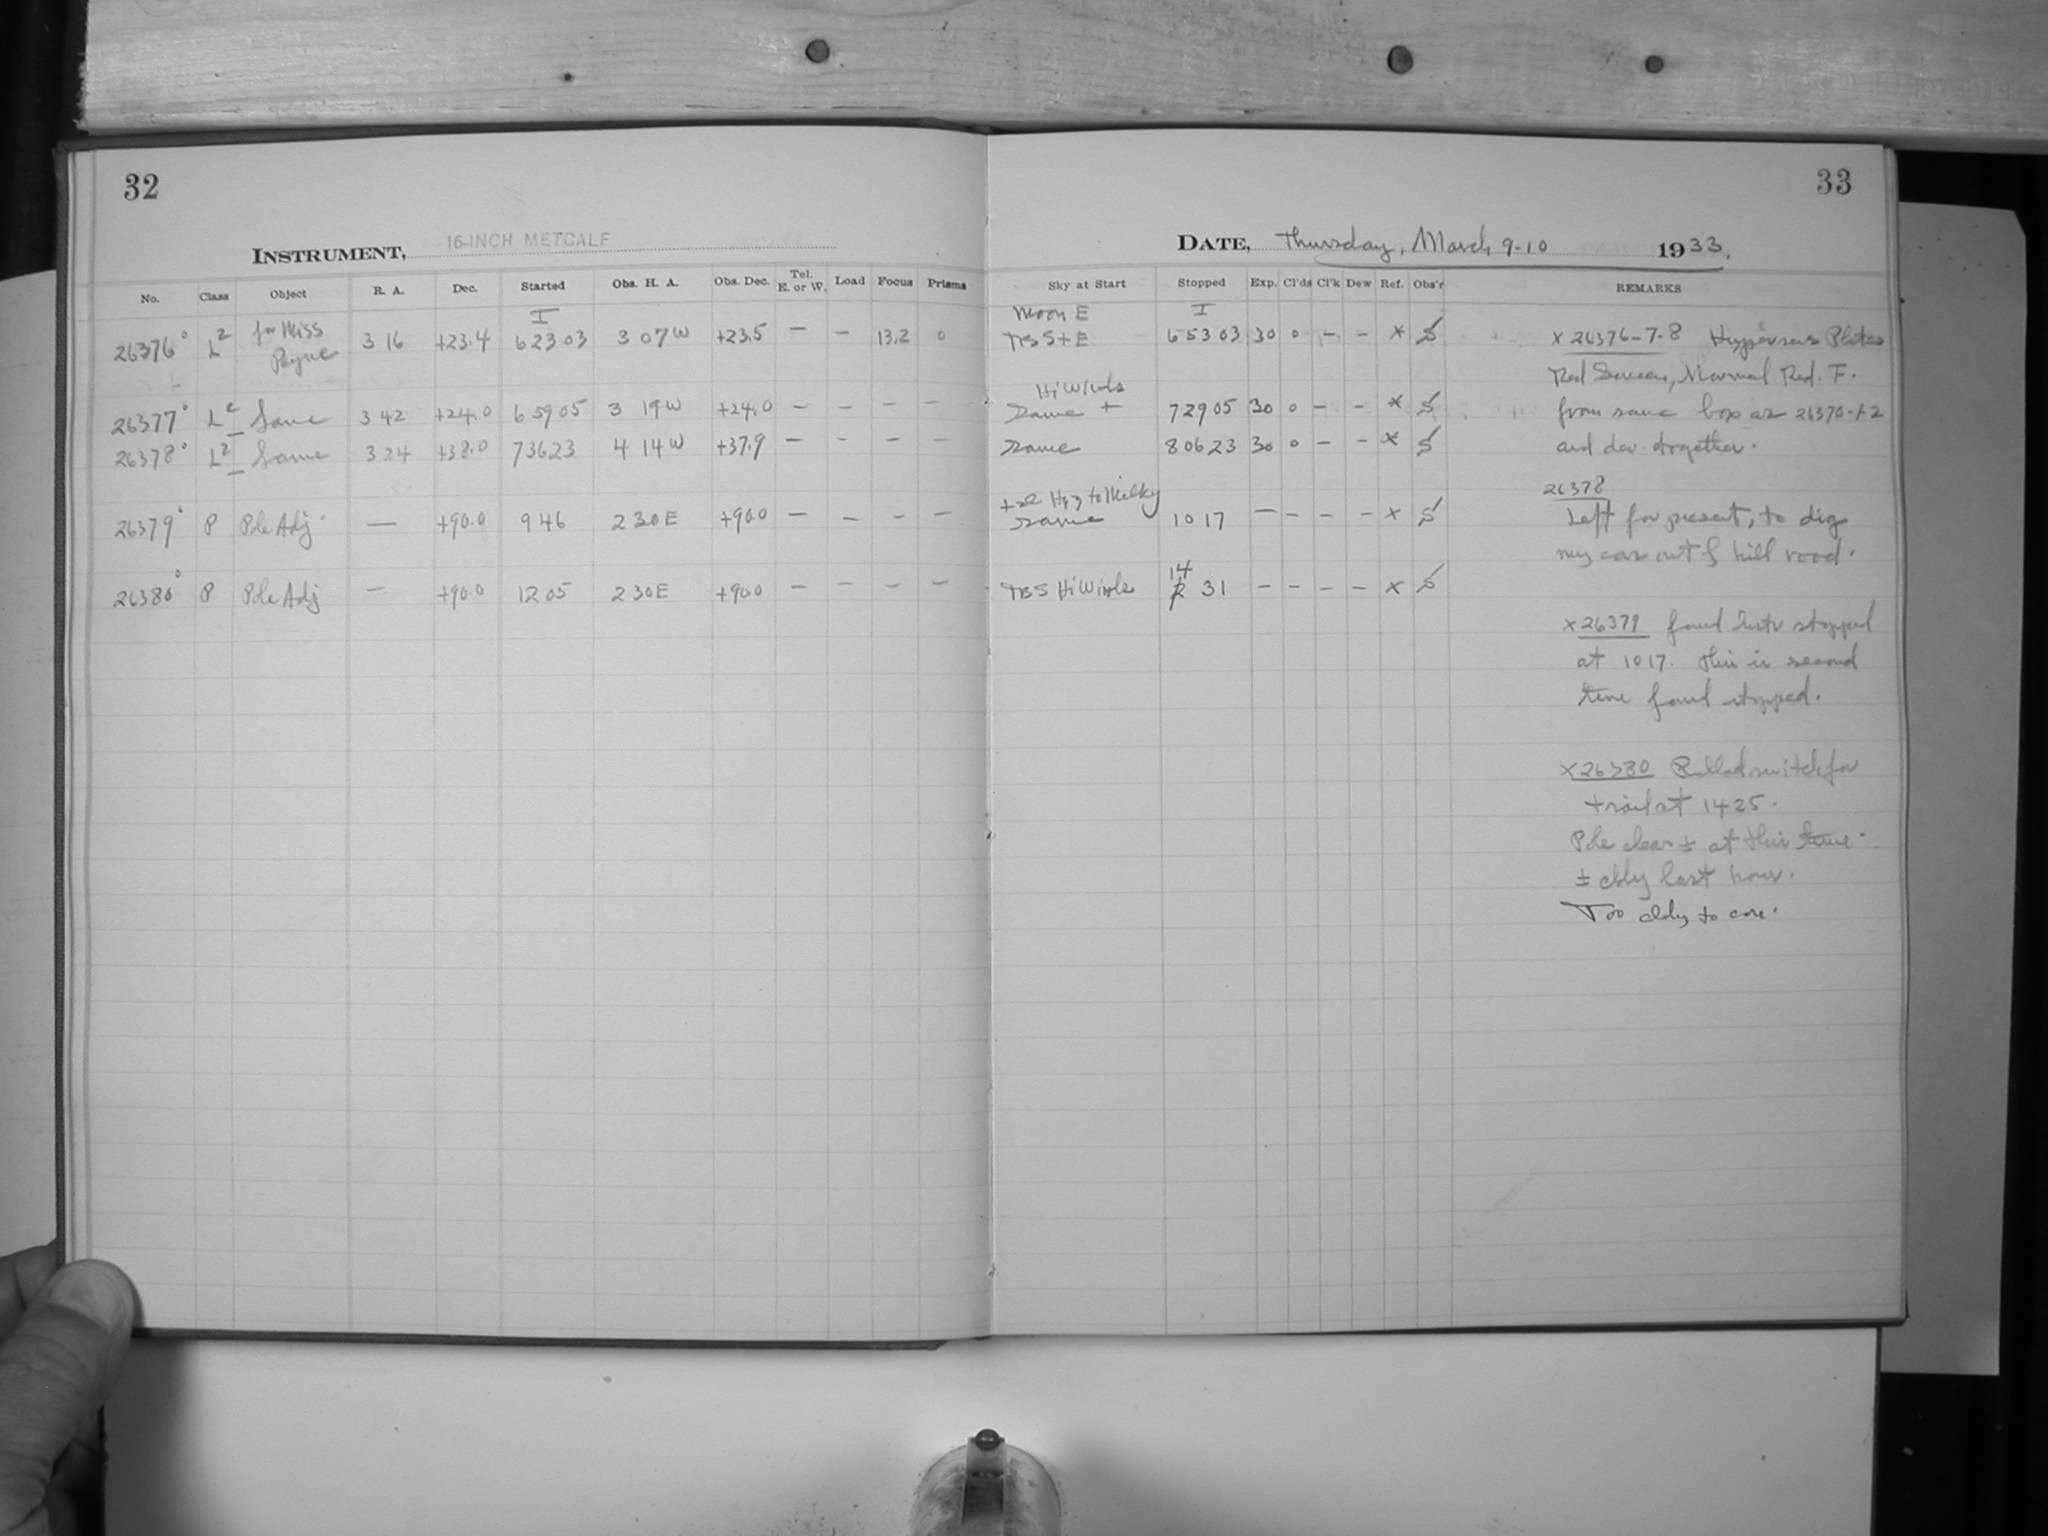 32
INSTRUMENT, 16-INCH METCALF
No. Class Object R. A. Dec. Started Obs. H. A. Obs. Dec. Tel. E. or W. Load Focus Prisms
I
26376° L2 for Miss Payne 3 16 +23.4 6 23 03 3 07 W +23.5 — — 13.2 0
26377° L2 Same 3 42 +24.0 6 59 05 3 19 W +24.0 — — — —
26378° L2 Same 3 24 +38.0 7 36 23 4 14 W +37.9 — — — —
26379° P Pole Adj. — +90.0 9 46 2 30 E +90.0 — — — —
26380° P Pole Adj — +90.0 12 05 2 30 E +90.0 — — — —
33
DATE, Thursday, March 9-10 1933.
Sky at Start Stopped Exp. Cl'ds Cl'k Dew Ref. Obs'r REMARKS
Moon E I
S+E 6 53 03 30 0 — — x S
Hi Winds
Same + 7 29 05 30 0 — — x S
Same 8 06 23 30 0 — — x S
Hzy to Milky
Same 10 17 — — — — x S
14
Hi Winds 31 — — — — x S
x 26376-7-8 Plates
Red Screen, Normal Red. F.
from same box as 26370-1-2
and dev. together.
26378
Left for present, to dig
my car out of hill road.
x 26379 found stopped
at 10 17. This is second
time found stopped.
x 26380 Pulled switch for
trail at 14 25.
Pole clear ± at this time.
± cldy last hour.
Too cldy to con.